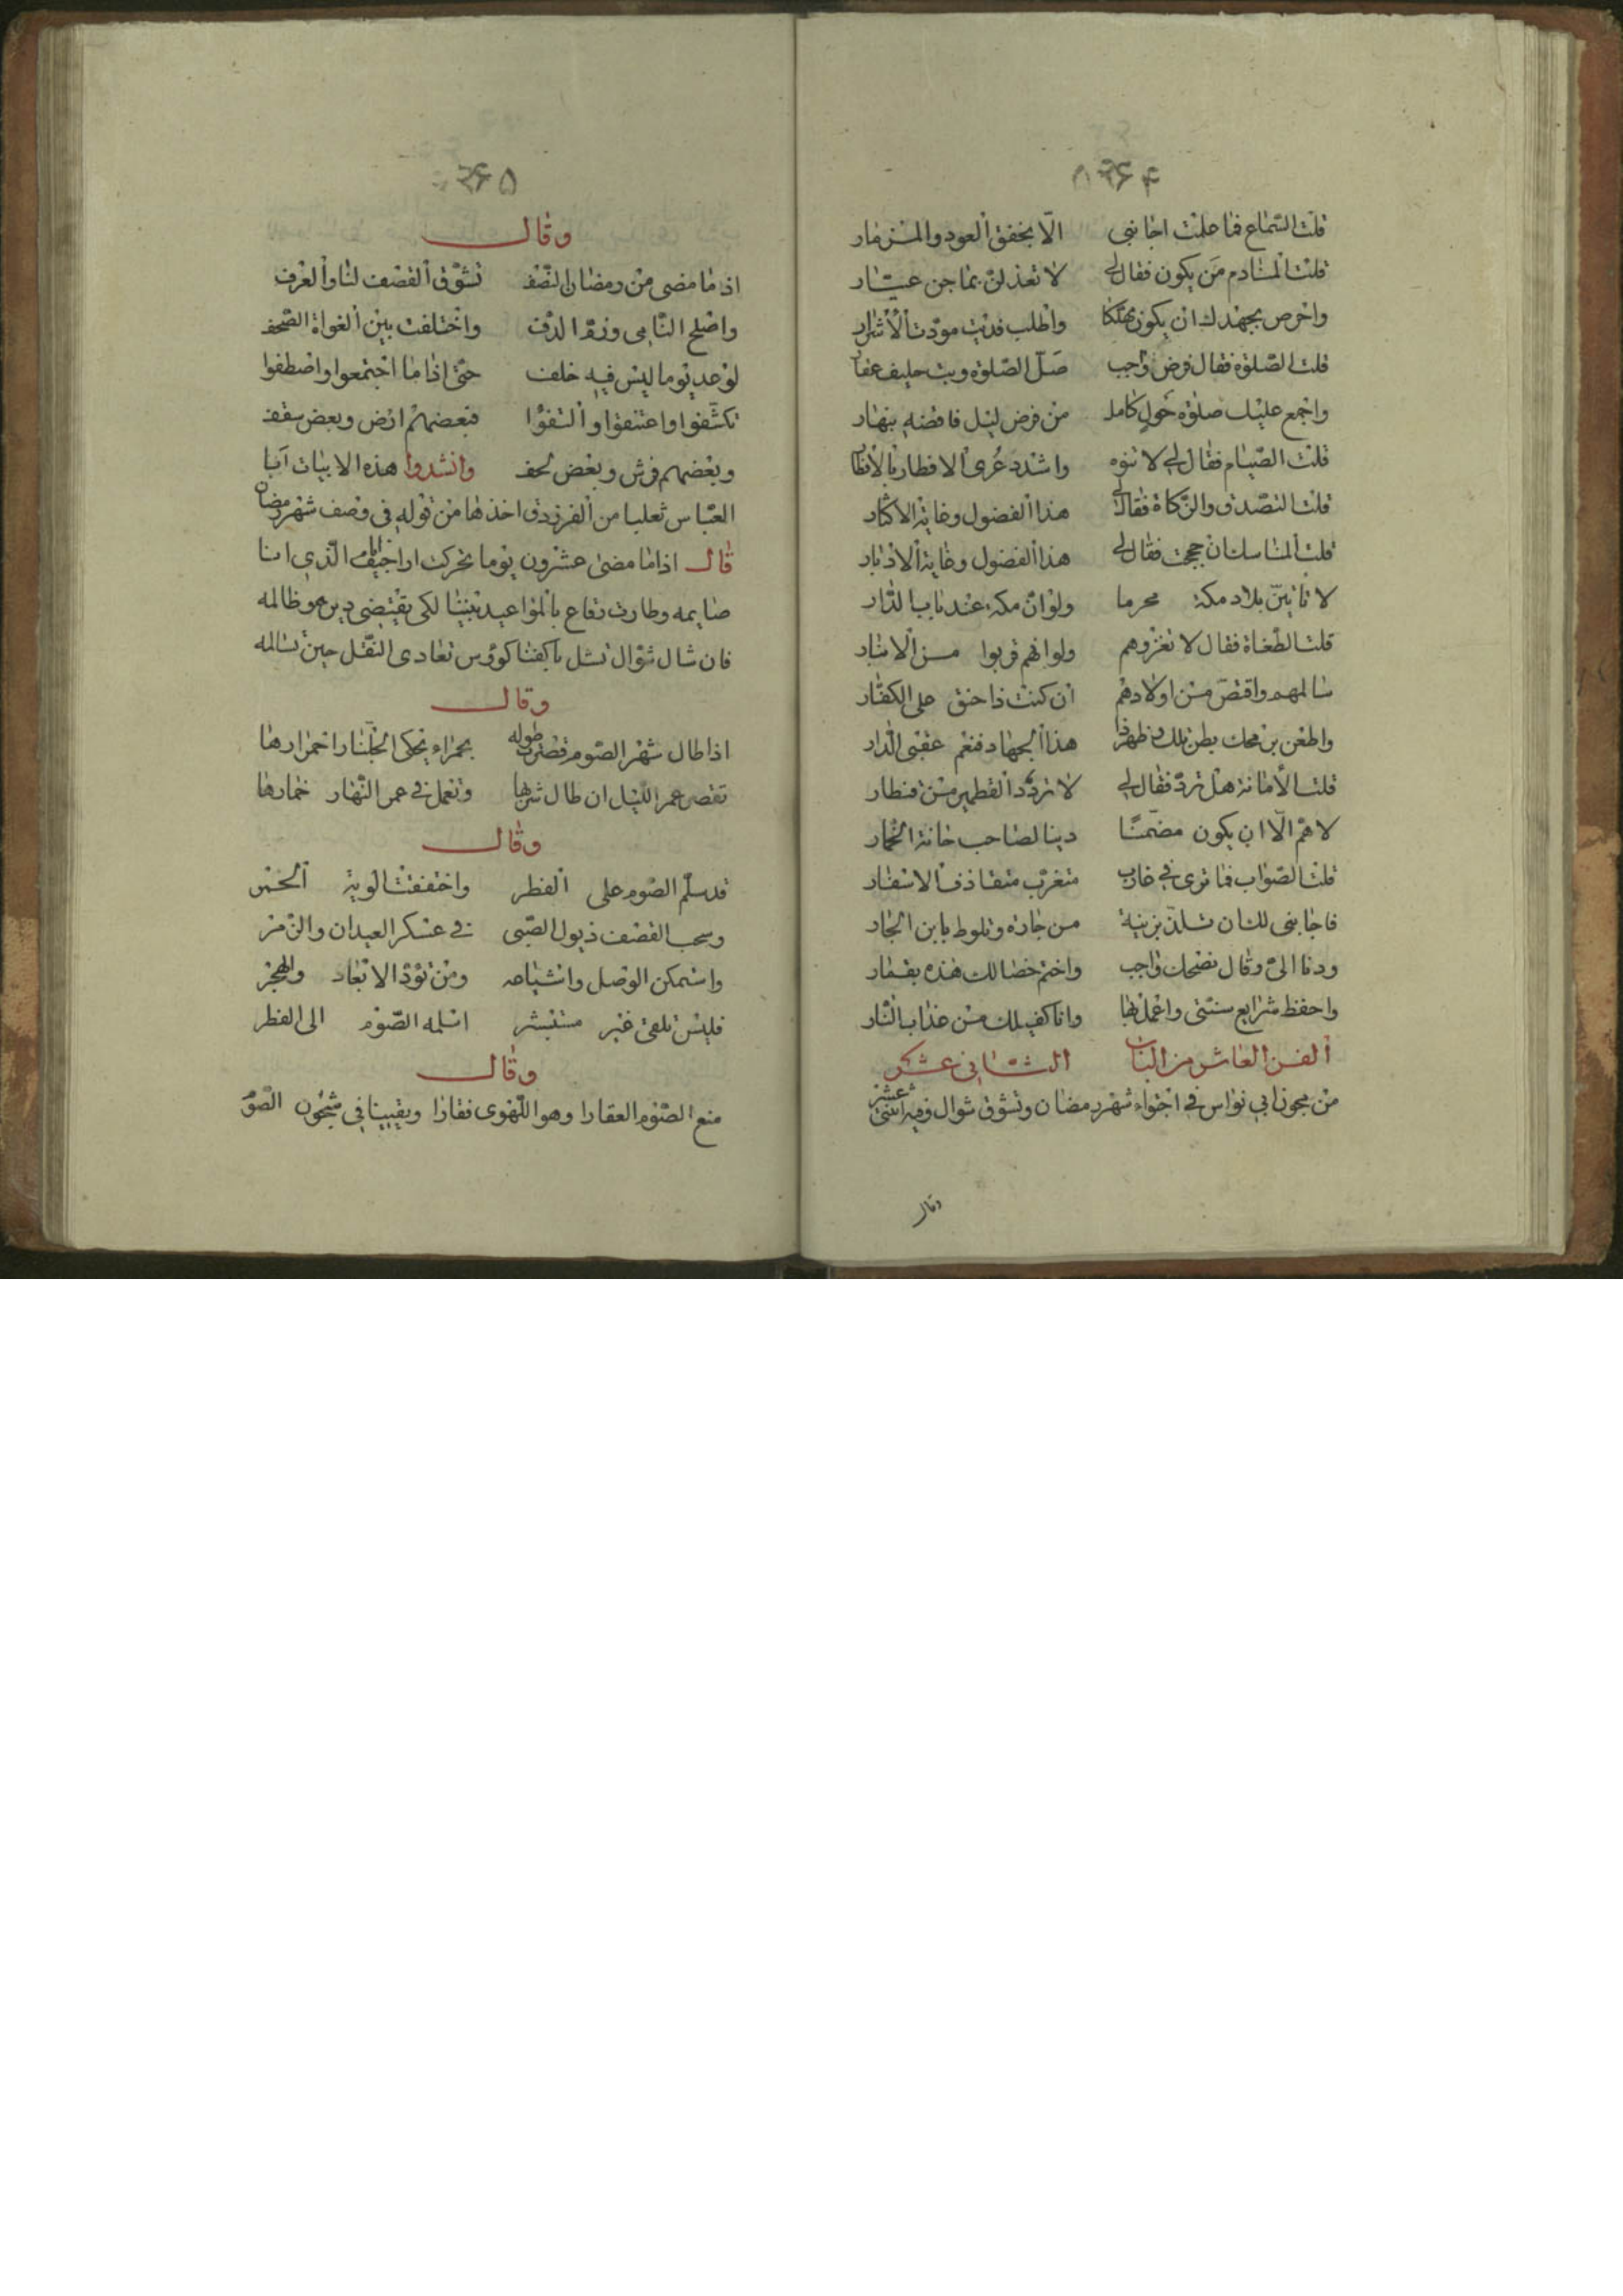 ۲۶۴
قلت السّماع فما علمت اجابنى الّا بخفق العود والمزمار
قلت المنادم من يكون فقال لى لا تعذلن بماجن عيّار
واحرص بجهدك ان يكون مهتكا واطلب فديت مودّت الأشرار
قلت الصّلوة فقال فرض واجب صلّ الصّلوة وبت حليف عقار
واجمع عليك صلوة حول كامل من فرض ليل فاقضه بنهار
قلت الصّيام فقال لى لا تنوه واشدد عرى الافطار بالافطار
قلت التصّدق والزّكاة فقال لى هذا الفضول وغاية الاكثار
قلت المناسك ان حججت فقال لى هذا الفضول وغاية الادبار
لا تأتينّ بلاد مكة محرما ولو انّ مكة عند باب الدّار
قلت الطّغاة فقال لا تغزوهم ولو انهم قربوا من الانبار
سالمهم واقتصّ من اولادهم ان كنت ذا حنق على الكفّار
واطعن برمحك بطن تلك وظهر ذا هذا الجهاد فنعم عقبى الدّار
قلت الأمانة هل تردّ فقال لى لا تردد القطمير من قنطار
لا همّ الّا ان يكون مضمّنًا دينا لصاحب خانة الخمّار
قلت الصّواب فما ترى فى عازب متغرّب متقاذف الاسفار
فاجابنى لك ان تلذّ بزنية من جارة وتلوط بابن الجار
ودنا الىّ وقال نصحك واجب واختم خصالك هذه بقمار
واحفظ شرايع سنّتى واعمل بها وانا كفيلك من عذاب النّار
الفن العاشر من الباب الثانى عشر
من مجون ابى نواس فى اجتواء شهر رمضان وتشوق شوال وفيه اثنى عشر
وقال
۲۶۵
وقال
اذ ما مضى من رمضان النّصف تشوّق القصف لنا والعزف
واصلح النّاى ورمّ الدّف واختلفت بين الغواة الصّحف
لوعد يوما ليس فيه خلف حتى اذا ما اجتمعوا واصطفوا
تكشّفوا واعتنقوا والتفّوا فبعضهم ارض وبعض سقف
وبعضهم فرش وبعض لحف وانشدوا هذه الابيات ابا
العبّاس ثعلبا من الفرزدق اخذها من قوله فى وصف شهر رمضان
قال اذا ما مضى عشرون يوما تحركت اراجيف الّذى انا
صايمه وطارت رقاع بالمواعيد بيننا لكى يقتضى دين هو ظالمه
فان شال شوّال نشل باكفنا كؤوس تعادى النقل حين تسالمه
وقال
اذا طال شهر الصّوم قصرت طوله بحمراء يحكى الجلّنار احمرارها
تقصر عمر اللّيل ان طال شربها وتعمل فى عمر النّهار خمارها
وقال
قد سلّم الصّوم على الفطر واخفقت الوية الخمر
وسحب القصف ذيول الصّبى فى عسكر العيدان والزّمر
واستمكن الوصل واشياعه ومن تؤدّ الابعاد والهجر
فليس تلقى غير مستبشر اسلمه الصّوم الى الفطر
وقال
منع الصّوم العقارا وهو اللّهوى فغارا وبقيينا فى سجون الصّو